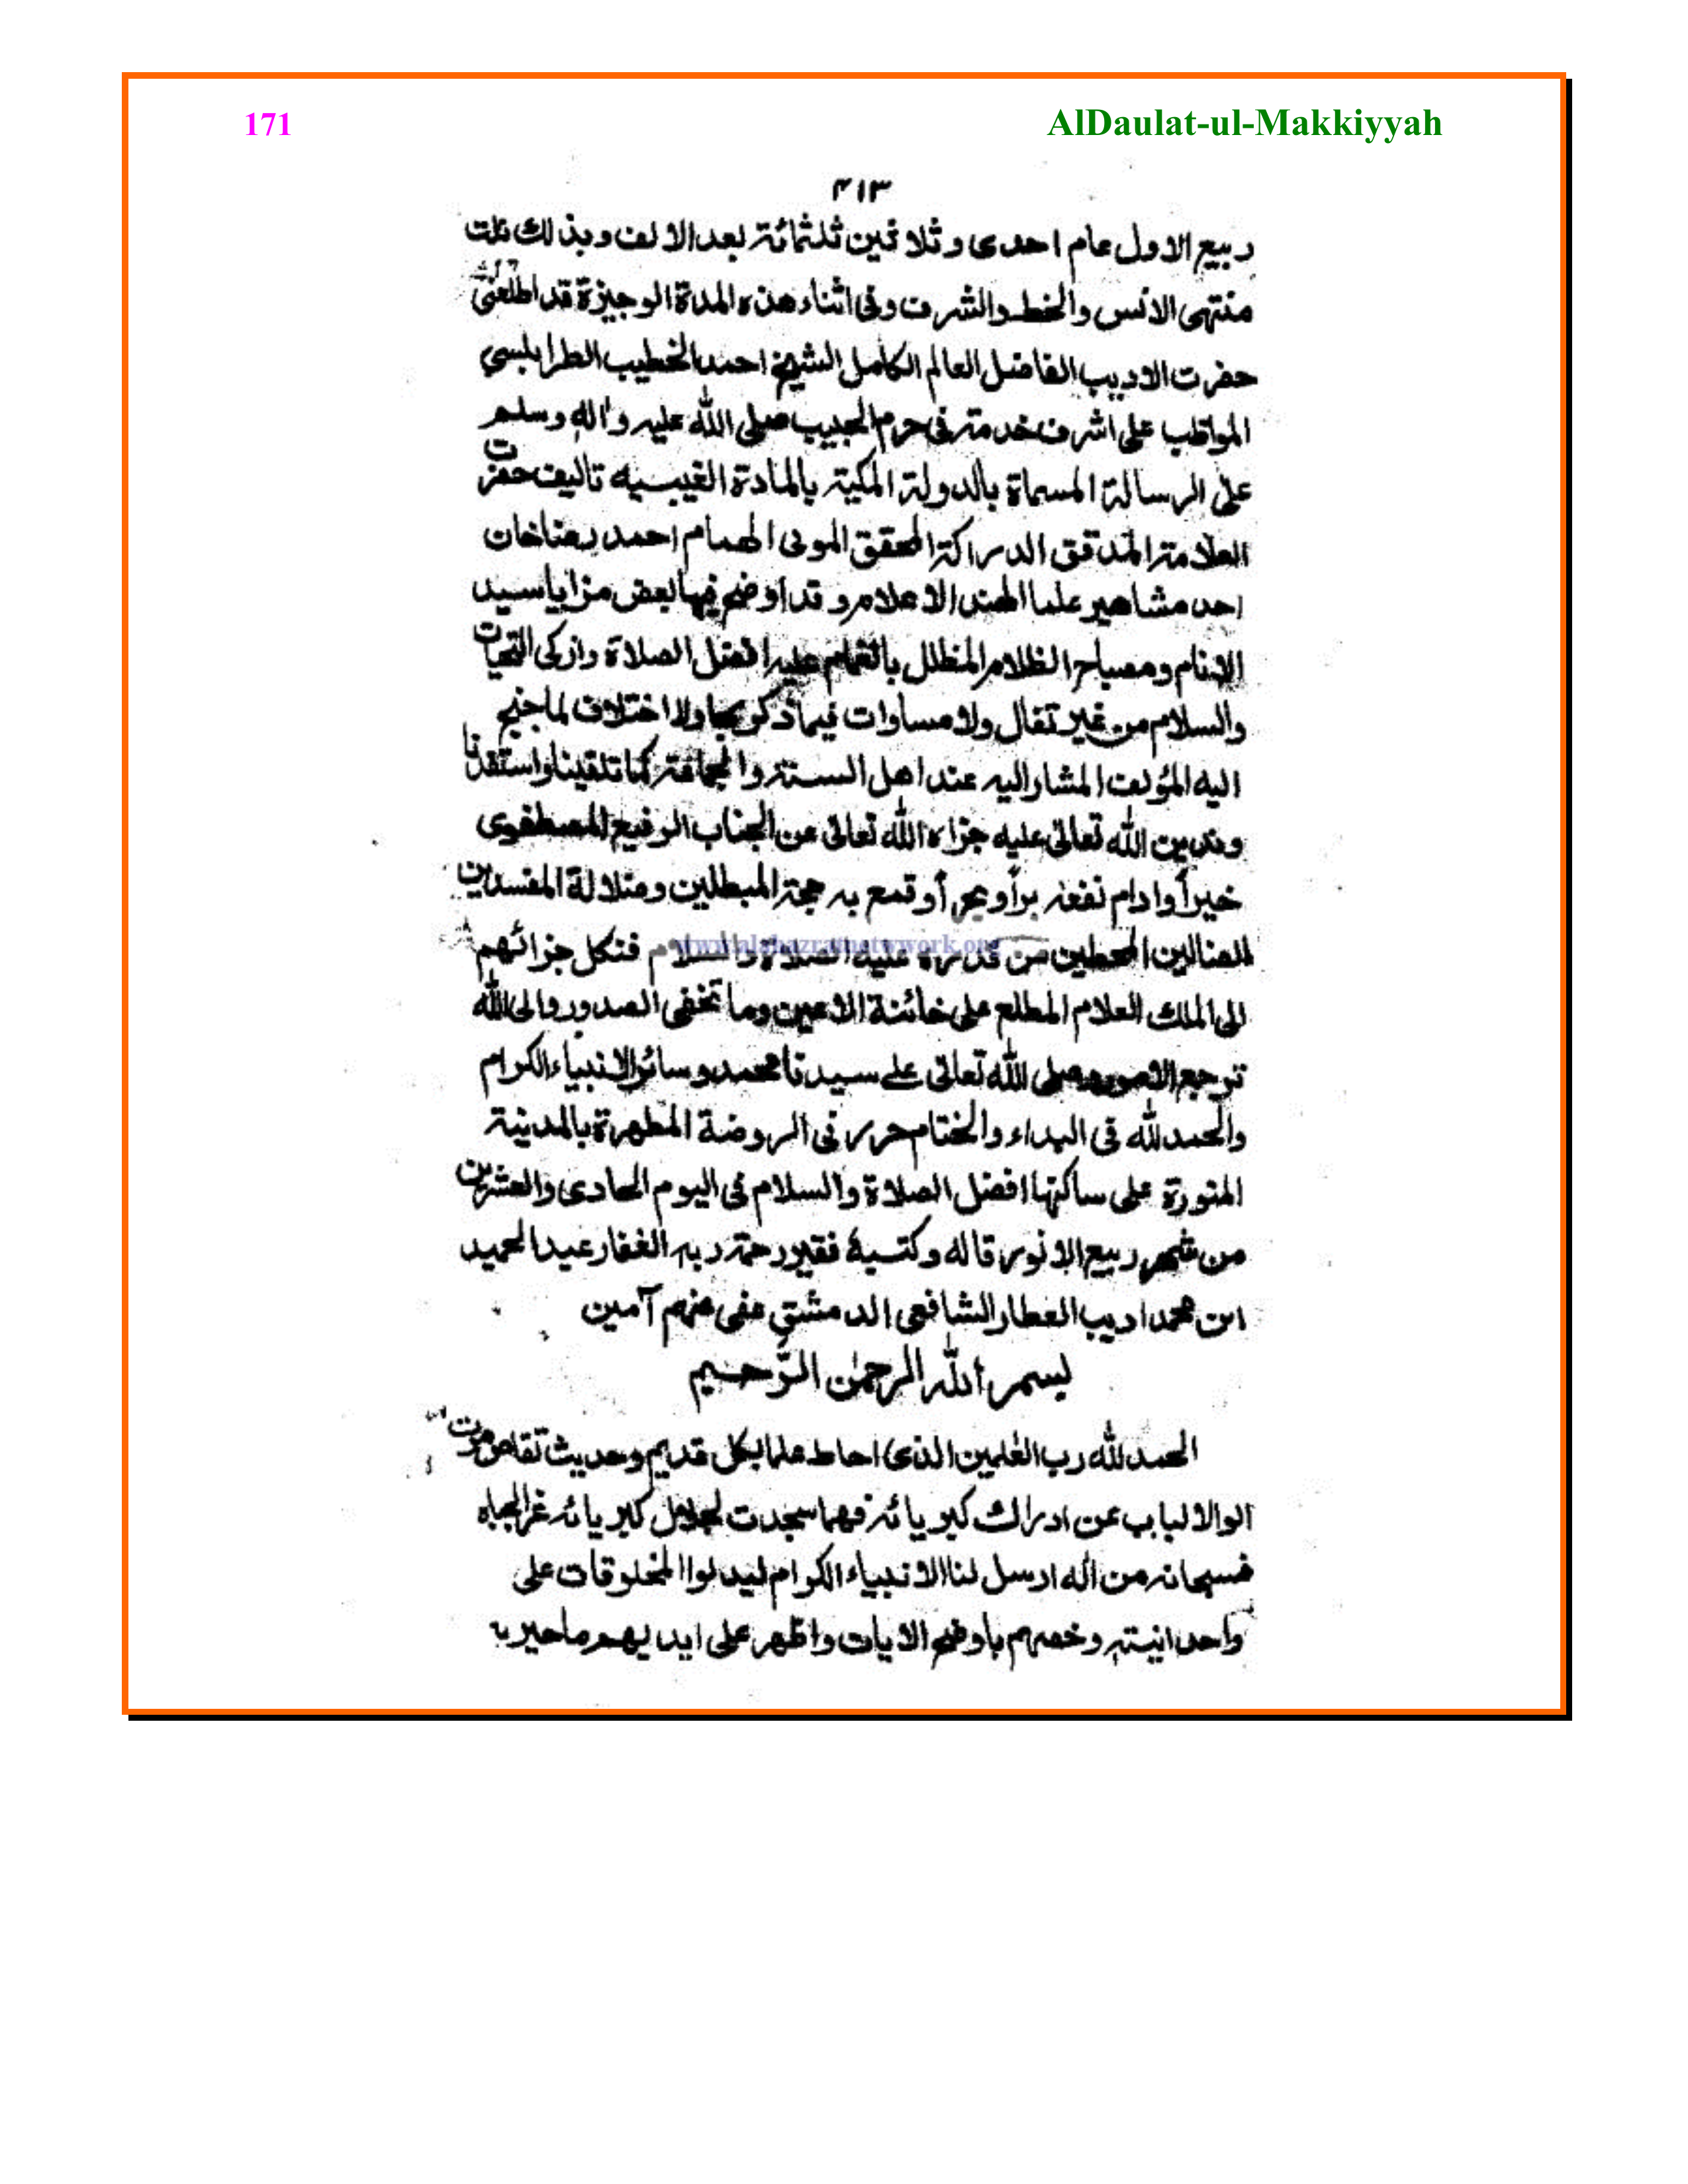 171 AlDaulat-ul-Makkiyyah
۴۱۳
ربيع الاول عام احدى وثلاثين ثلثمائة بعد الالف وبذلك نلت
منتهى الانس والخط والشرف وفى اثناء هذه المدة الوجيزة قد اطلعنى
حضرت الاديب الفاضل العالم الكامل الشيخ احمد الخطيب الطرابلسي
المواظب على اشرف خدمة فى حرم الحبيب صلى الله عليه واله وسلم
على الرسالة المسماة بالدولة المكية بالمادة الغيبيه تاليف حضرت
العلامة المدقق الدراكة المحقق المولى الهمام احمد رضاخان
احد مشاهير علما الهند الاعلام وقد اوضح فيها بعض مزايا سيد
الانام ومصباح الظلام المظلل بالغمام عليه افضل الصلاة وازكى التحيات
والسلام من غير تغال ولا مساوات فيما ذكر بها ولا اختلاف لما جنح
اليه المؤلف المشار اليه عند اهل السنة والجماعة كما تلقينا واستفدنا
وندين الله تعالى عليه جزاه الله تعالى عن الجناب الرفيع المصطفوى
خيرأ وادام نفعه برأ وبحرأ وقمع به حجة المبطلين وضلالة المفسدين
الضالين المحطين من قدره عليه الصلاة والسلام فنكل جزائهم
الى الملك العلام المطلع على خائنة الاعين وما تخفى الصدور والى الله
ترجع الامور وصلى الله تعالى على سيدنا محمد وسائر الانبياء الكرام
والحمد لله فى البداء والختام حرر فى الروضة المطهرة بالمدينة
المنورة على ساكنها افضل الصلاة والسلام فى اليوم الحادى والعشرين
من شهر ربيع الانور قاله وكتبه فقير رحمة ربه الغفار عبد الحميد
ابن محمد اديب العطار الشافعى الدمشقي عفى عنهم آمين
بسم الله الرحمن الرحيم
الحمد لله رب العٰلمين الذى احاط علما بكل قديم وحديث تقاصرت
الوالالباب عن ادراك كبريائه فهما سجدت لجلال كبريائه غر الجباه
فسبحانه من اله ارسل لنا الانبياء الكرام ليدلوا المخلوقات على
واحدانيته وخصهم باوضح الايات واظهر على ايديهم ماحير به
www.alahazratnetwork.org